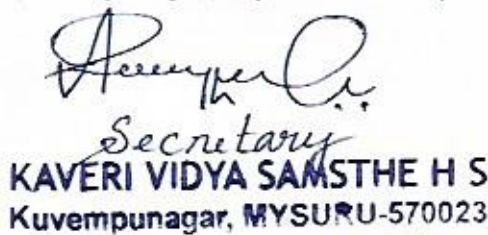 Secretary
KAVERI VIDYA SAMSTHE H S
Kuvempunagar, MYSURU-570023